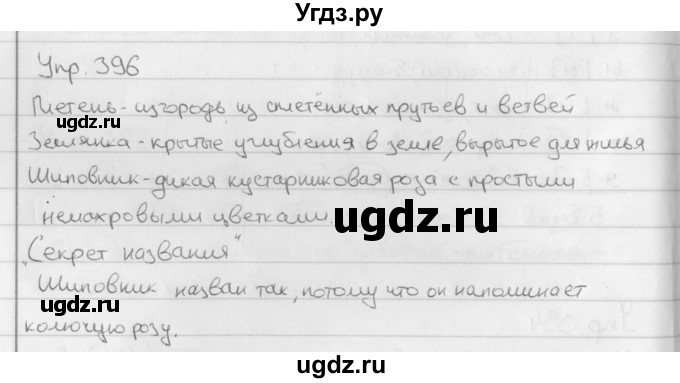 Угдз.ру
Упр. 396
Плетень - изгородь из сплетённых прутьев и ветвей
ugdz.ru
Землянка - крытые углубления в земле, вырытое для жилья
ugdz.ru
Шиповник - дикая кустарниковая роза с простыми
немахровыми цветками.
ugdz.ru
„Секрет названия"
Шиповник назван так, потому что он напоминает
ugdz.ru
ugdz.ru
колючую розу.
ugdz.ru